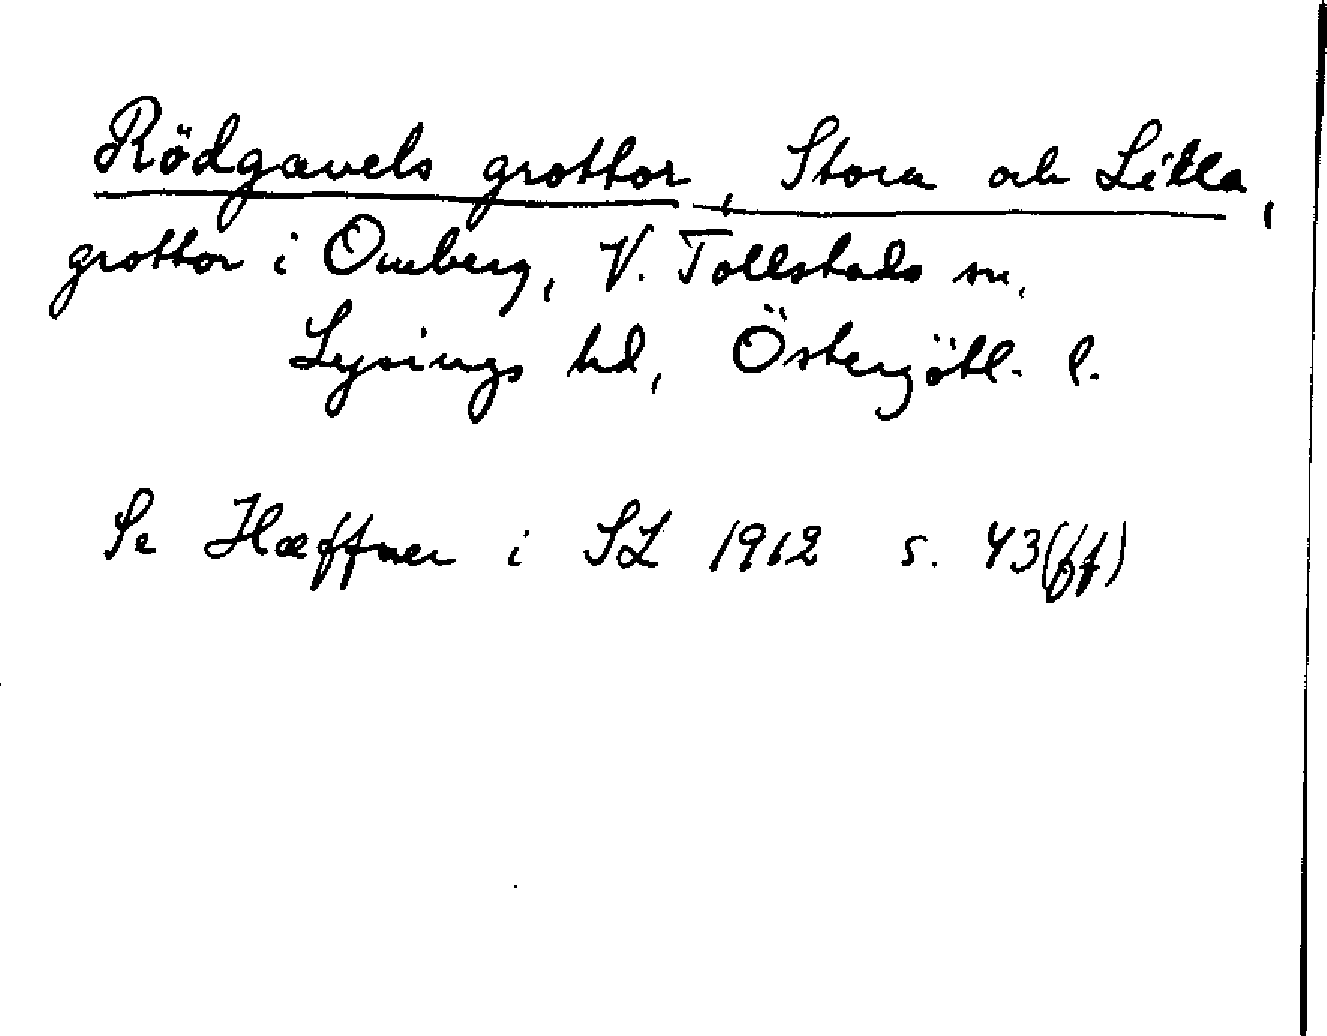 Rödgavels grottor, Stora och Lilla,
grottor i Omberg, V. Tollstads sn,
Lysings hd, Östergötl. l.
Se Hæffner i SL 1912 s. 43(ff)